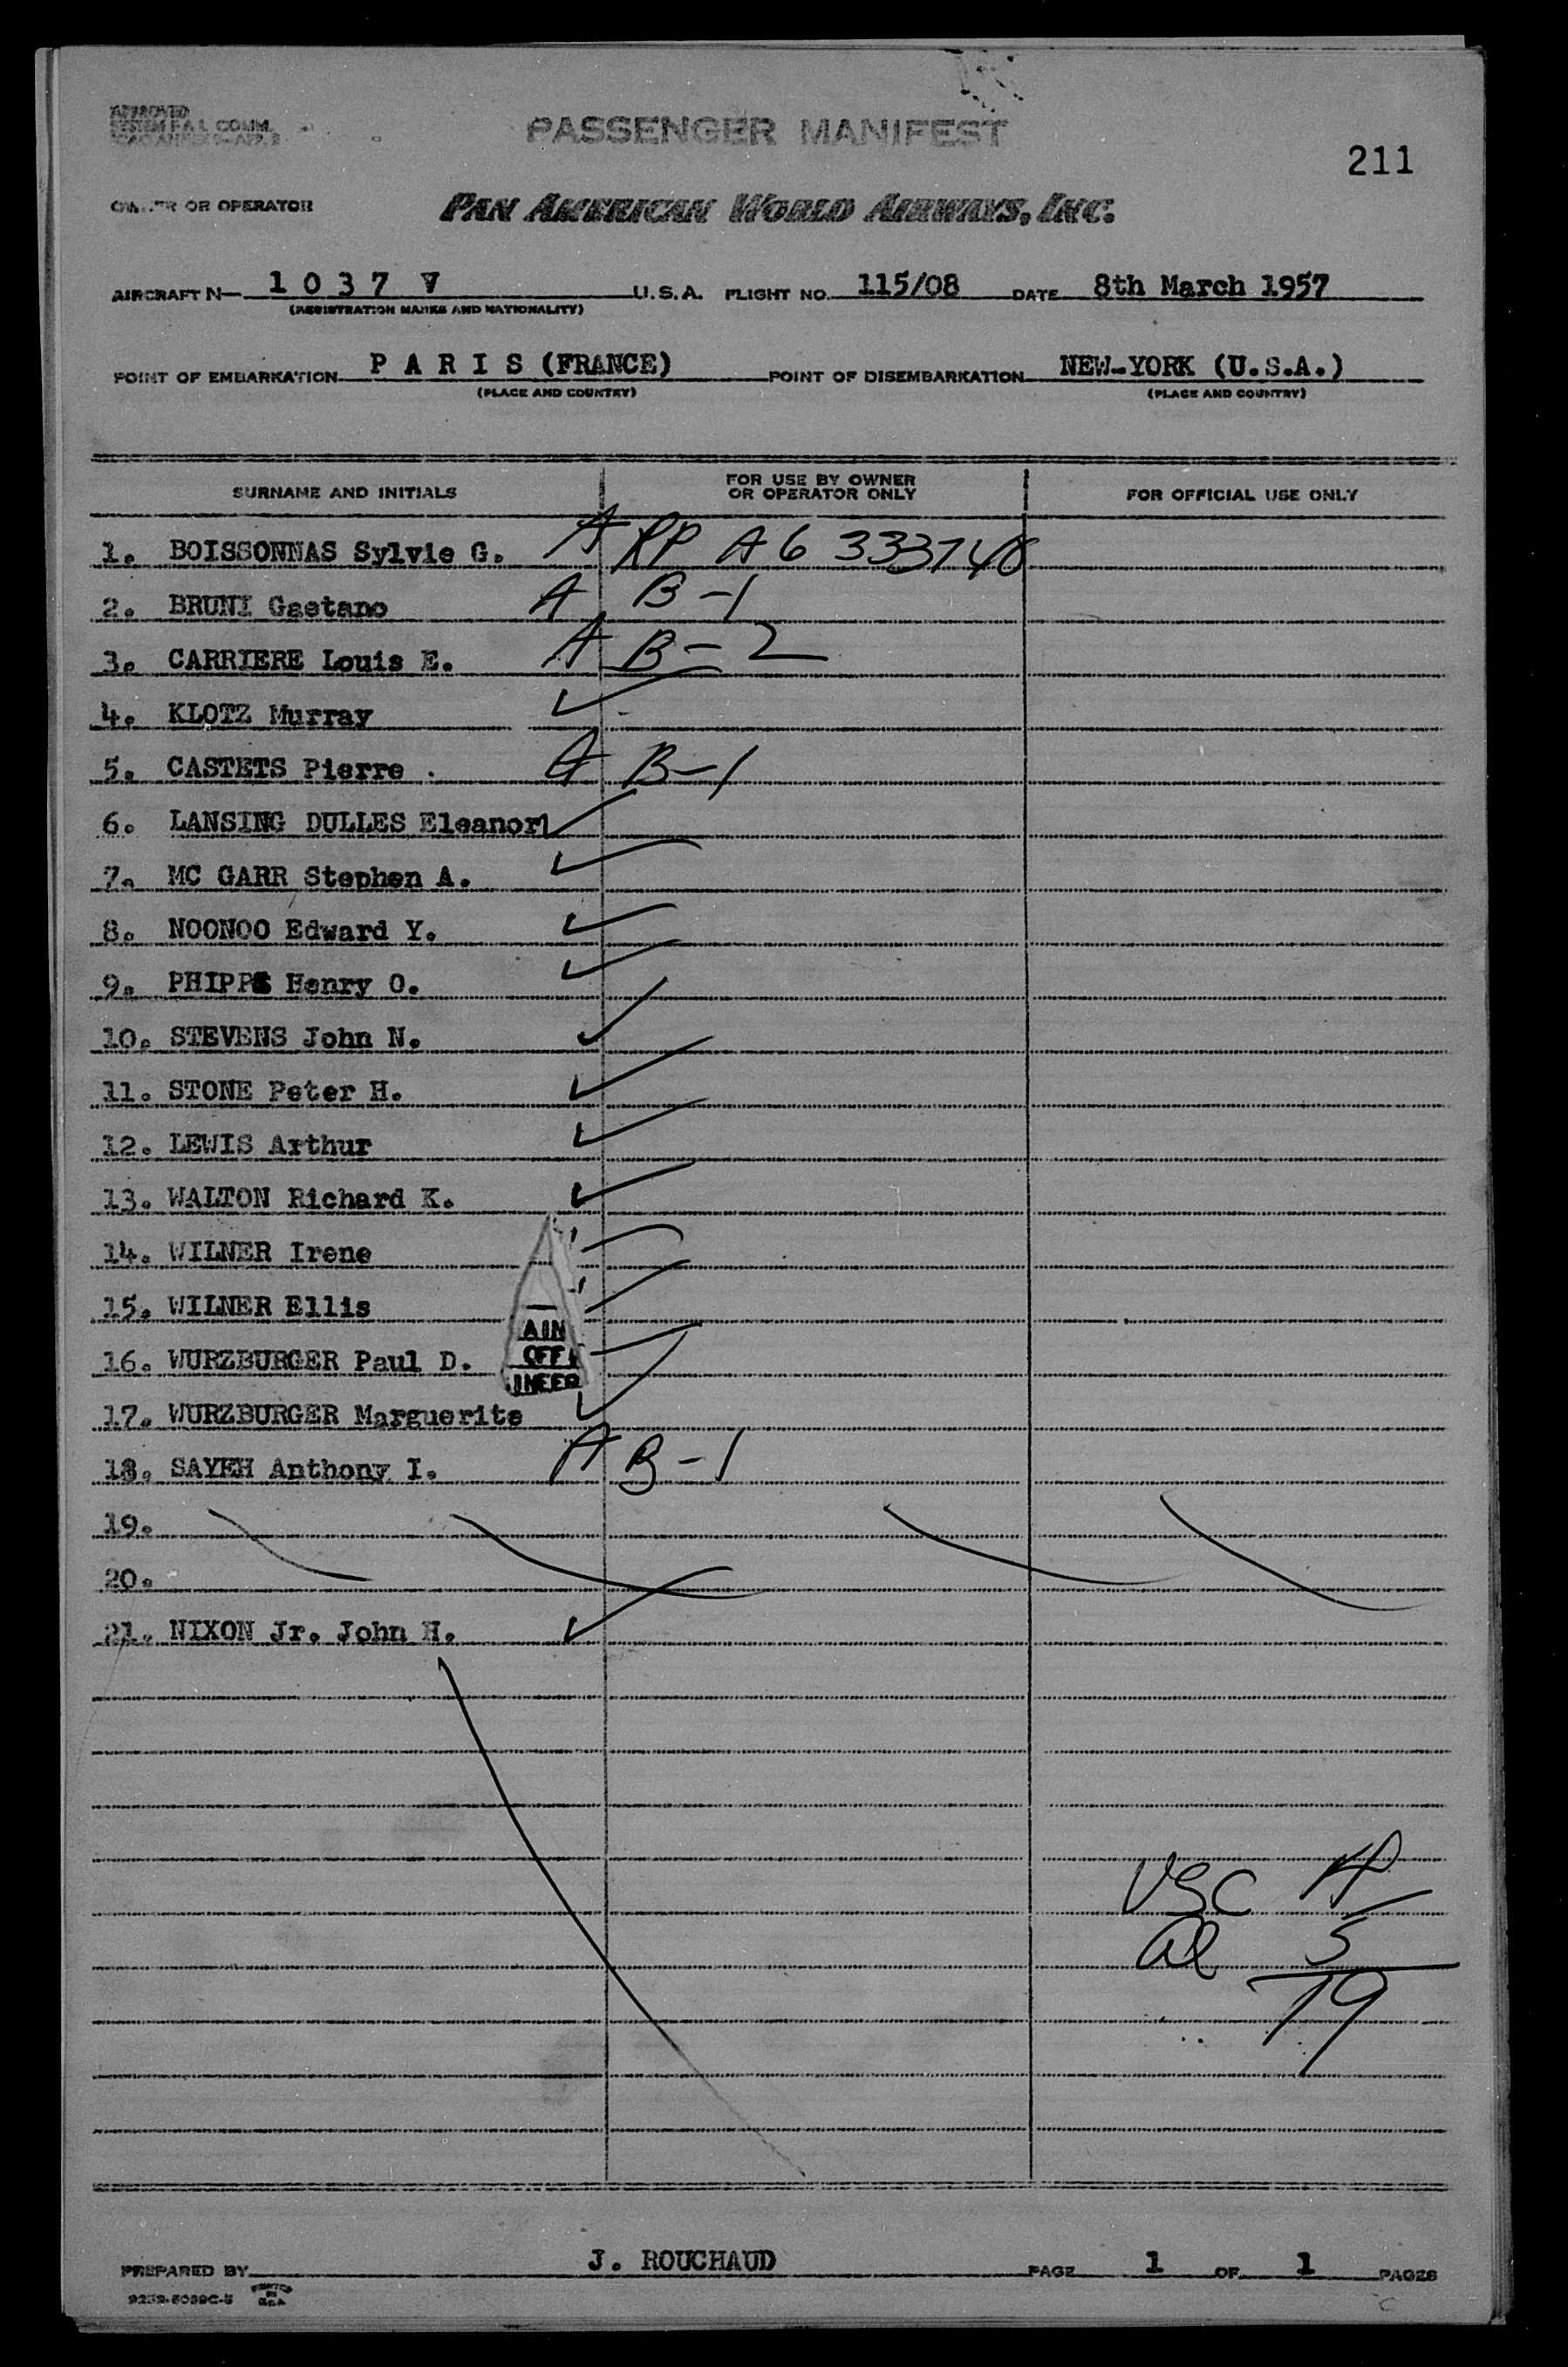 APPROVED
SYSTEM F.A.L. COMM.
PASSENGER MANIFEST
211
OR OPERATOR
PAN AMERICAN WORLD AIRWAYS, INC.
AIRCRAFT N— 1 0 3 7 V U.S.A. FLIGHT NO. 115/08 DATE 8th March 1957
(REGISTRATION MARKS AND NATIONALITY)
POINT OF EMBARKATION P A R I S (FRANCE) POINT OF DISEMBARKATION NEW-YORK (U.S.A.)
(PLACE AND COUNTRY) (PLACE AND COUNTRY)
SURNAME AND INITIALS FOR USE BY OWNER OR OPERATOR ONLY FOR OFFICIAL USE ONLY
1. BOISSONNAS Sylvie G. A RP A6 333740
2. BRUNI Gaetano A B-1
3. CARRIERE Louis E. A B-2
4. KLOTZ Murray ✓
5. CASTETS Pierre . A B-1
6. LANSING DULLES Eleanor ✓
7. MC GARR Stephen A. ✓
8. NOONOO Edward Y. ✓
9. PHIPPS Henry O. ✓
10. STEVENS John N. ✓
11. STONE Peter H. ✓
12. LEWIS Arthur ✓
13. WALTON Richard K. ✓
14. WILNER Irene ✓
15. WILNER Ellis ✓
AIN
16. WURZBURGER Paul D. OFF ✓
INEER
17. WURZBURGER Marguerite ✓
18. SAYEH Anthony I. A B-1
19.
20.
21. NIXON Jr. John H. ✓
USC 14
al 5
19
PREPARED BY J. ROUCHAUD PAGE 1 OF 1 PAGES
PRINTED IN U.S.A.